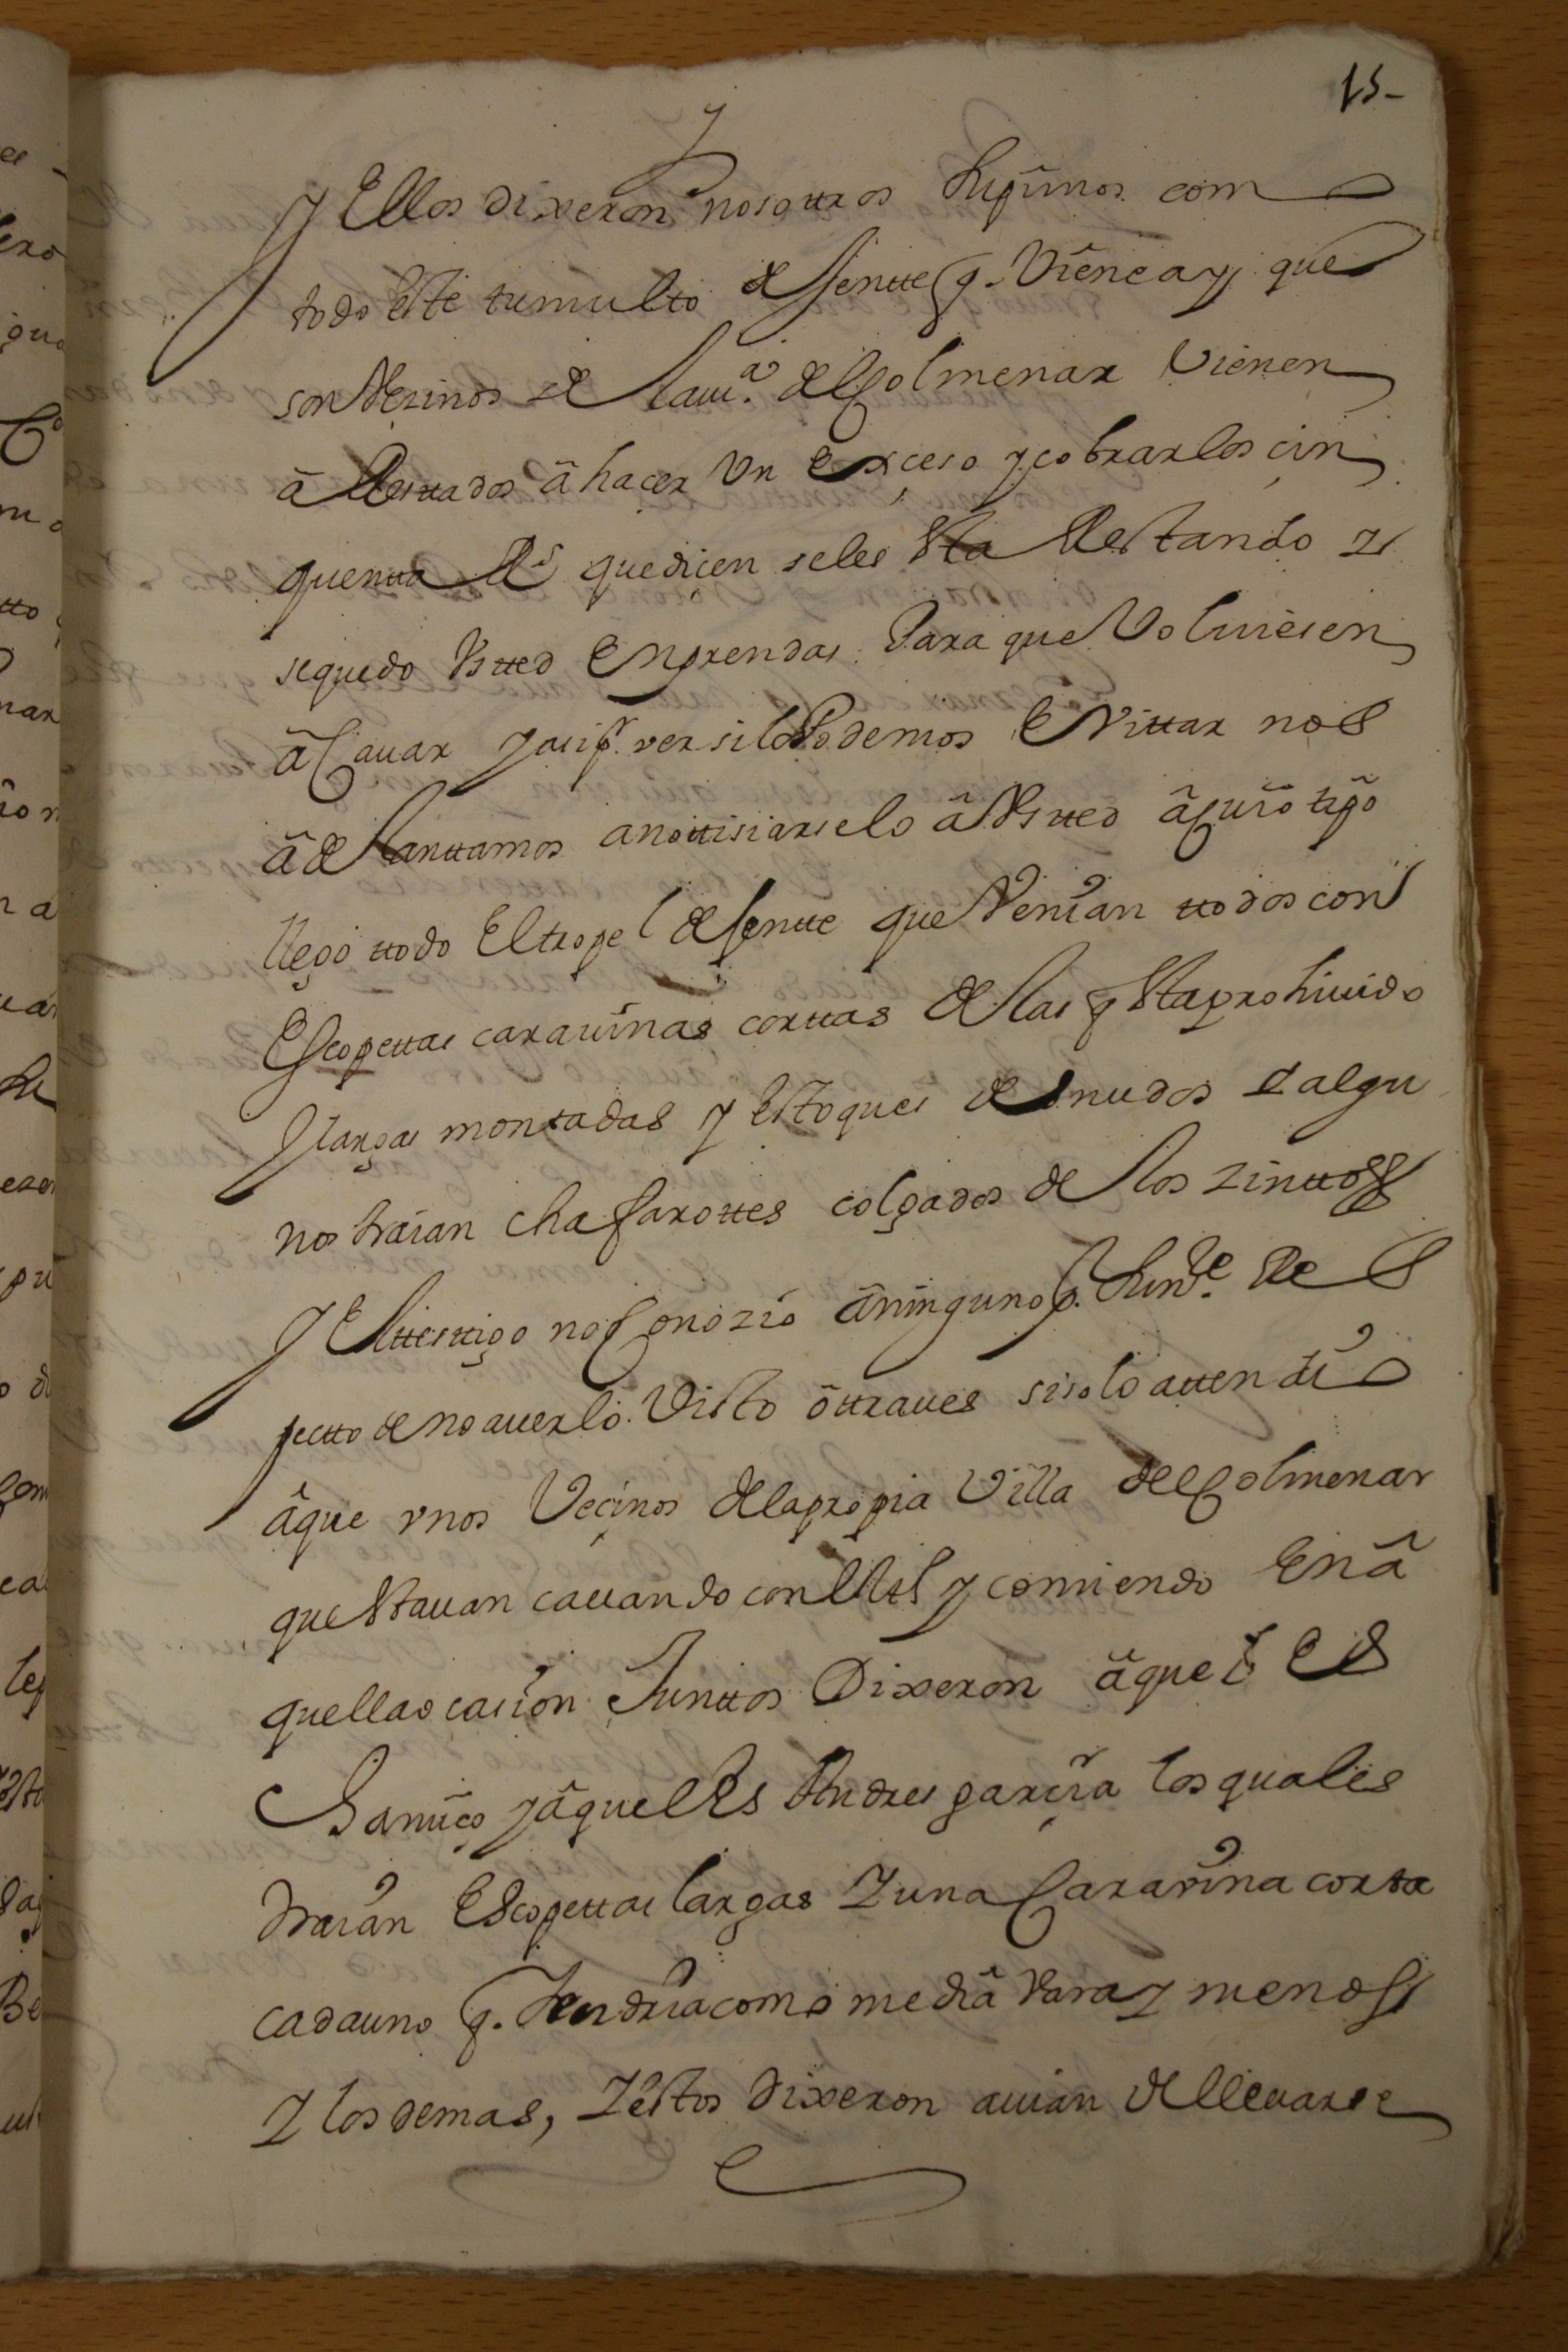 15-
y
y Ellos dixeron nosottros supimos com
todo este tumulto de Jentte q. viene ay que
son vezinos de la vi.ª del Colmenar vienen
â Resttados â hacer vn exçeso y cobrar los çin
quentta R.s que diçen seles sta Restando y
se quedo Vstted En prendas Para que Voluiesen
â Cauar y asi p.r ver si lo Podemos Evittar nos
âdelanttamos anottisiarselo â Vstted â cuio tpõ
llegó ttodo El tropel de Jentte que Venían ttodos con
Escopettas carauinas corttas de las q sta prohiuido
y largas montadas y Estoques desnudos y algu
nos traían chafarottes colgados de los zinttos
y El ttesttigo no Conozió â ninguno p.
pectto de no auerlo Visto ôttra ues si solo attendió
â que vnos Veçinos de la propia Villa del Colmenar
que stauan cauando con El ttº y comiendo En â
quella ocasión Junttos Dixeron âquel Es
y âquel Es Andres garçía los quales
traían Escopettas largas y una Carauina corta
cada uno q. tendría como media vara y menos
y los demas, y éstos dixeron auían de lleuarse